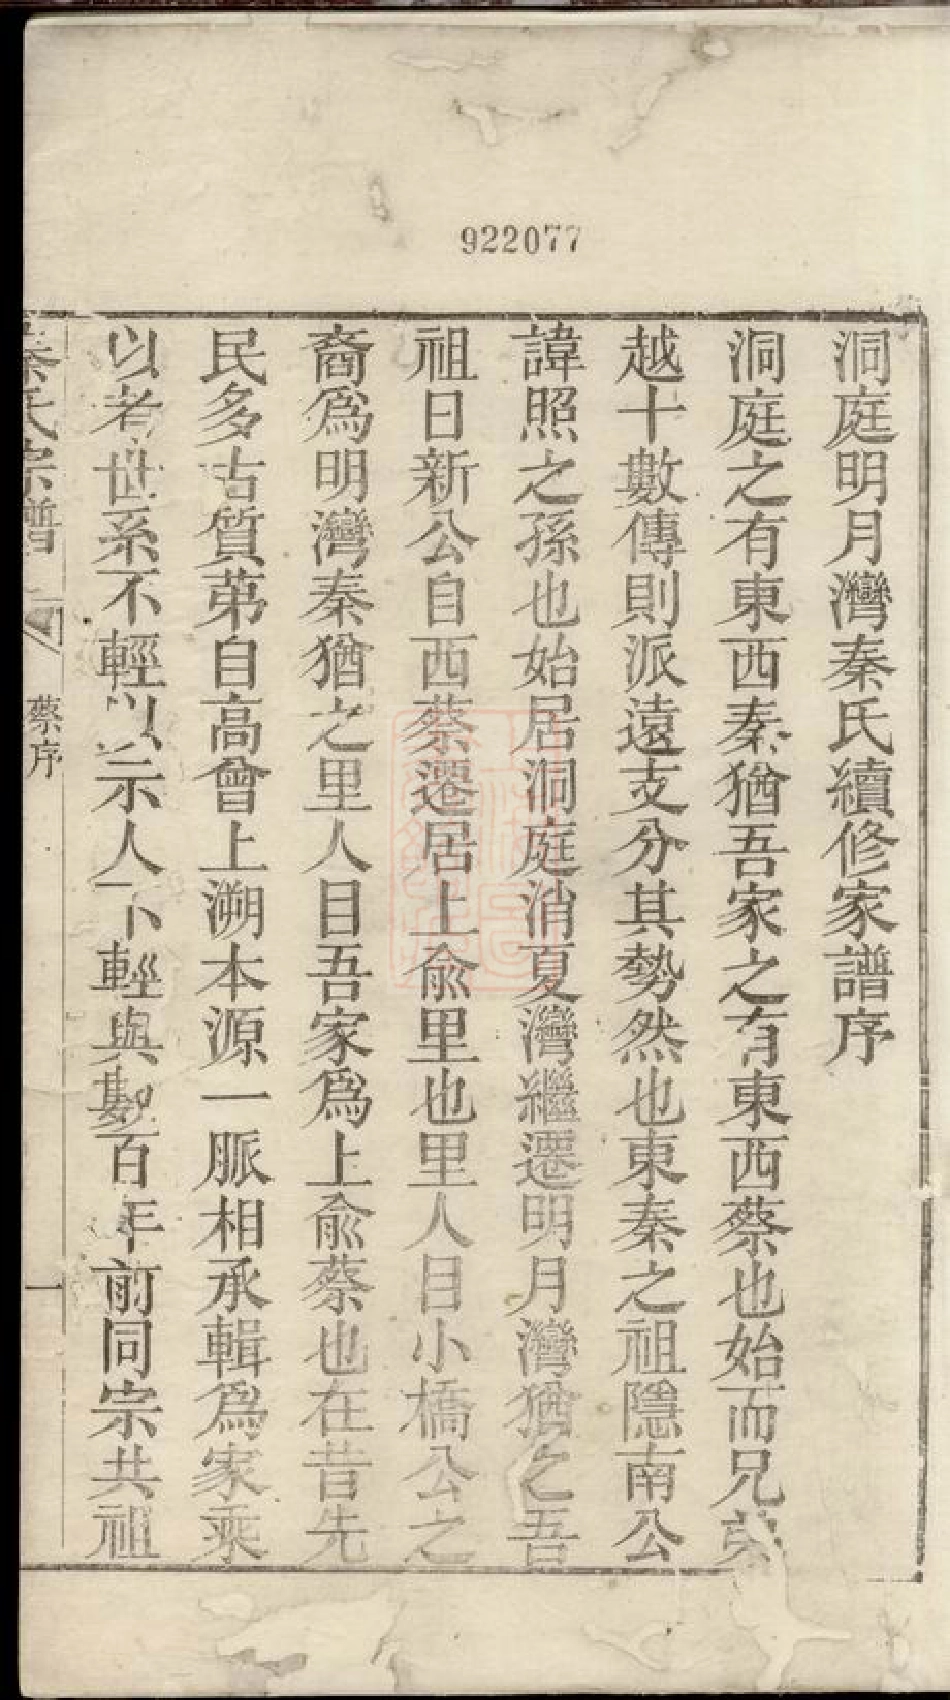 922077
洞庭明月灣秦氏續修家譜序
洞庭之有東西秦猶吾家之有東西蔡也始而兄弟
越十數傳則派遠支分其勢然也東秦之祖隱南公
諱照之孫也始居洞庭消夏灣繼遷明月灣猶之吾
祖日新公自西蔡遷居上俞里也里人目小橋公之
裔爲明灣秦猶之里人目吾家爲上俞蔡也在昔先
民多古質苐自高曾上溯本源一脈相承輯爲家乘
以者世系不輕以示人不輕與數百年前同宗共祖
秦氏宗譜
蔡序
一